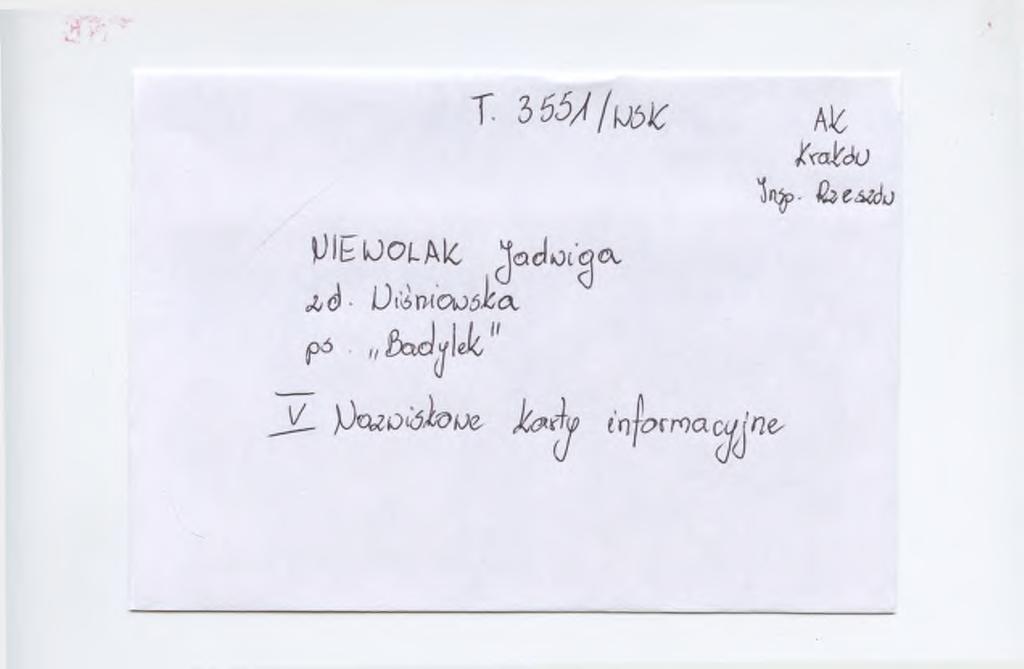 T. 3551/WSK
AK
Kraków
Insp. Rzeszów
NIEWOLAK Jadwiga
zd. Wiśniowska
ps. „Badylek"
V Nazwiskowe karty informacyjne